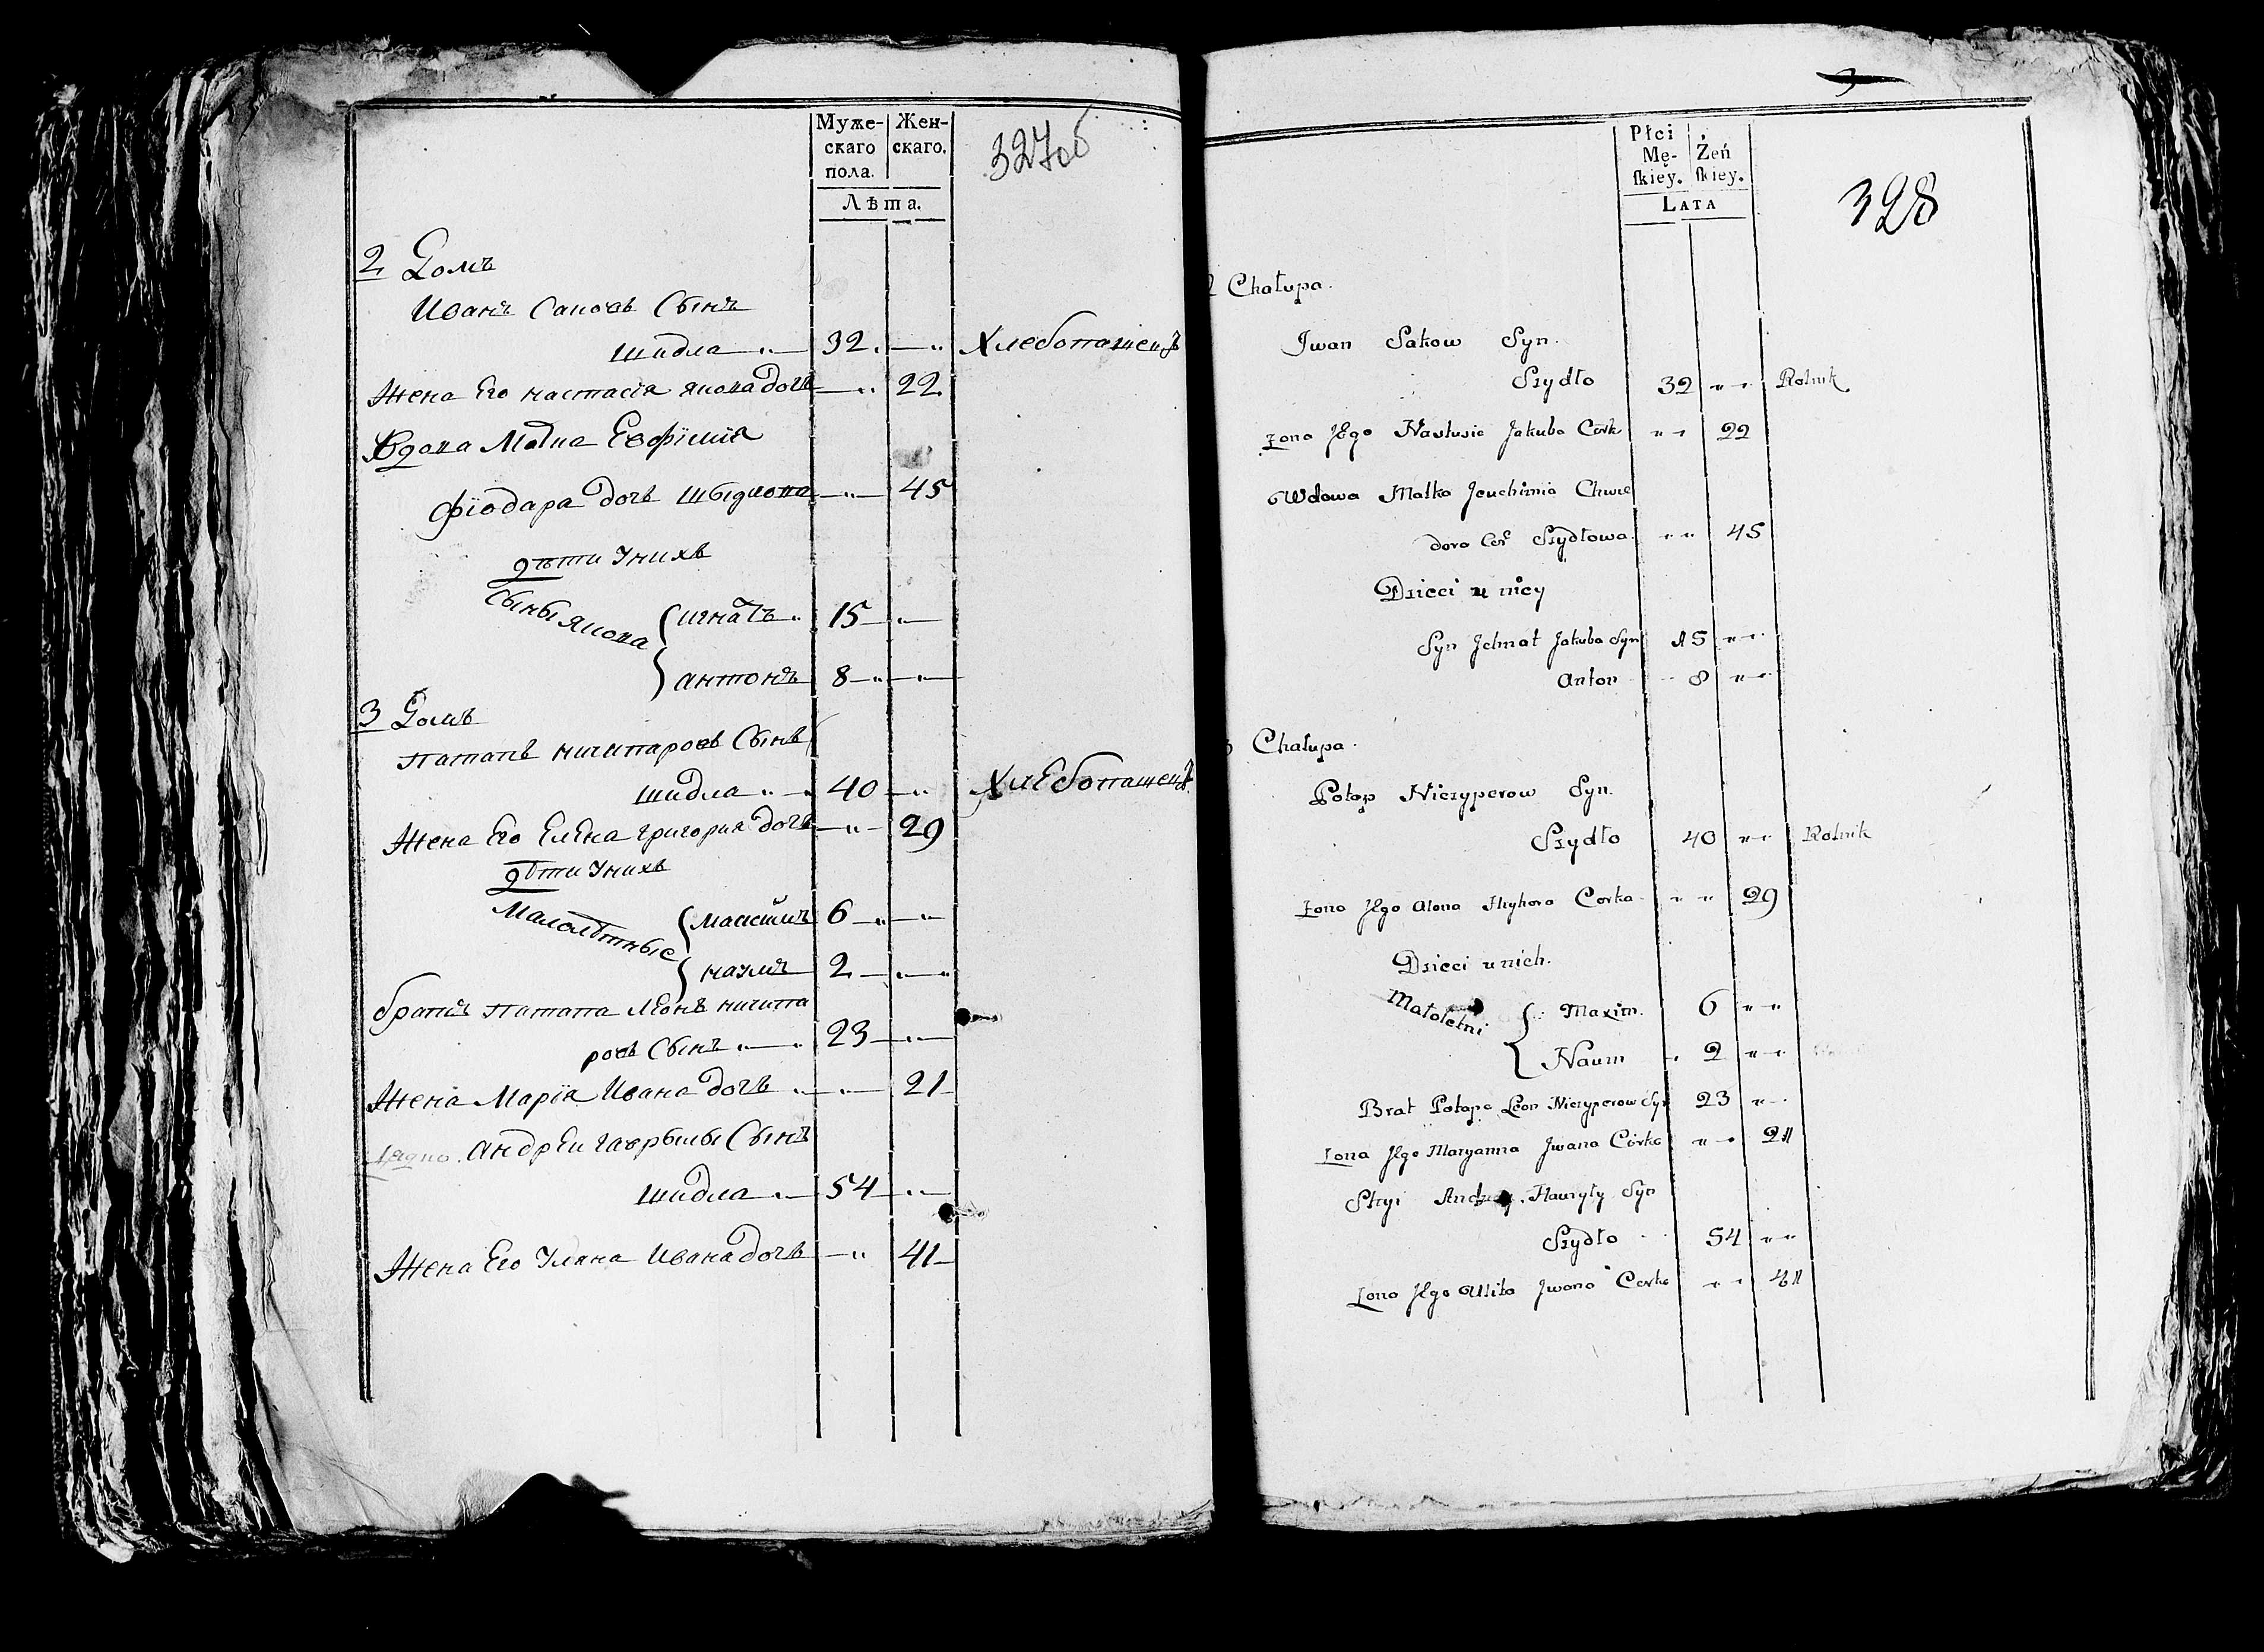 Муже-
скаго
пола.
Жен-
скаго.
Лѣта.
327об
2 Домъ
Иванъ Саковъ Сынъ
шидла 32 Хлебопашецъ
Жена Его настасія якова дочь 22
Вдова Матка Евфимія
фіодара дочь шыдлова 45
дѣти Унихъ
Сыны якова игнатъ 15
антонъ 8
3 Домъ
патапъ ничипаровъ Сынъ
шидла 40 ХлЕбопашецъ
Жена Его Елена григория дочь 29
дѣти Унихъ
Малолѣтные максимъ 6
наумъ 2
братъ патапа леонъ ничипа
ровъ Сынъ 23
Жена Марія Ивана дочь 21
андрЕи гаврылы Сынъ
шидла 54
Жена Его Уляна Ивана дочь 41
Płci
Mę-
ſkiey.
Żeń
ſkiey.
LATA
328
2 Chałupa.
Jwan Sakow Syn.
Szydło 32 Rolnik
Zona Jego Nastusia Jakuba Cork 22
Wdowa Matka Jeuchimia Chwie
dora Cor Szydłowa 45
Dzieci u niey
Syn Jehnat Jakuba Syn 15
Anton 8
3 Chałupa.
Potap Niczyperow Syn.
Szydło 40 Rolnik
Zona Jego Alona Hryhora Corka 29
Dzieci u nich.
Małoletni Maxim. 6
Naum 2
Brat Potapa Leon Niczyperow Syn 23
Zona Jego Maryanna Jwana Córka 21
Stryi Andrey Hawryły Syn
Szydło 54
Zona Jego Ulita Jwana Corka 41